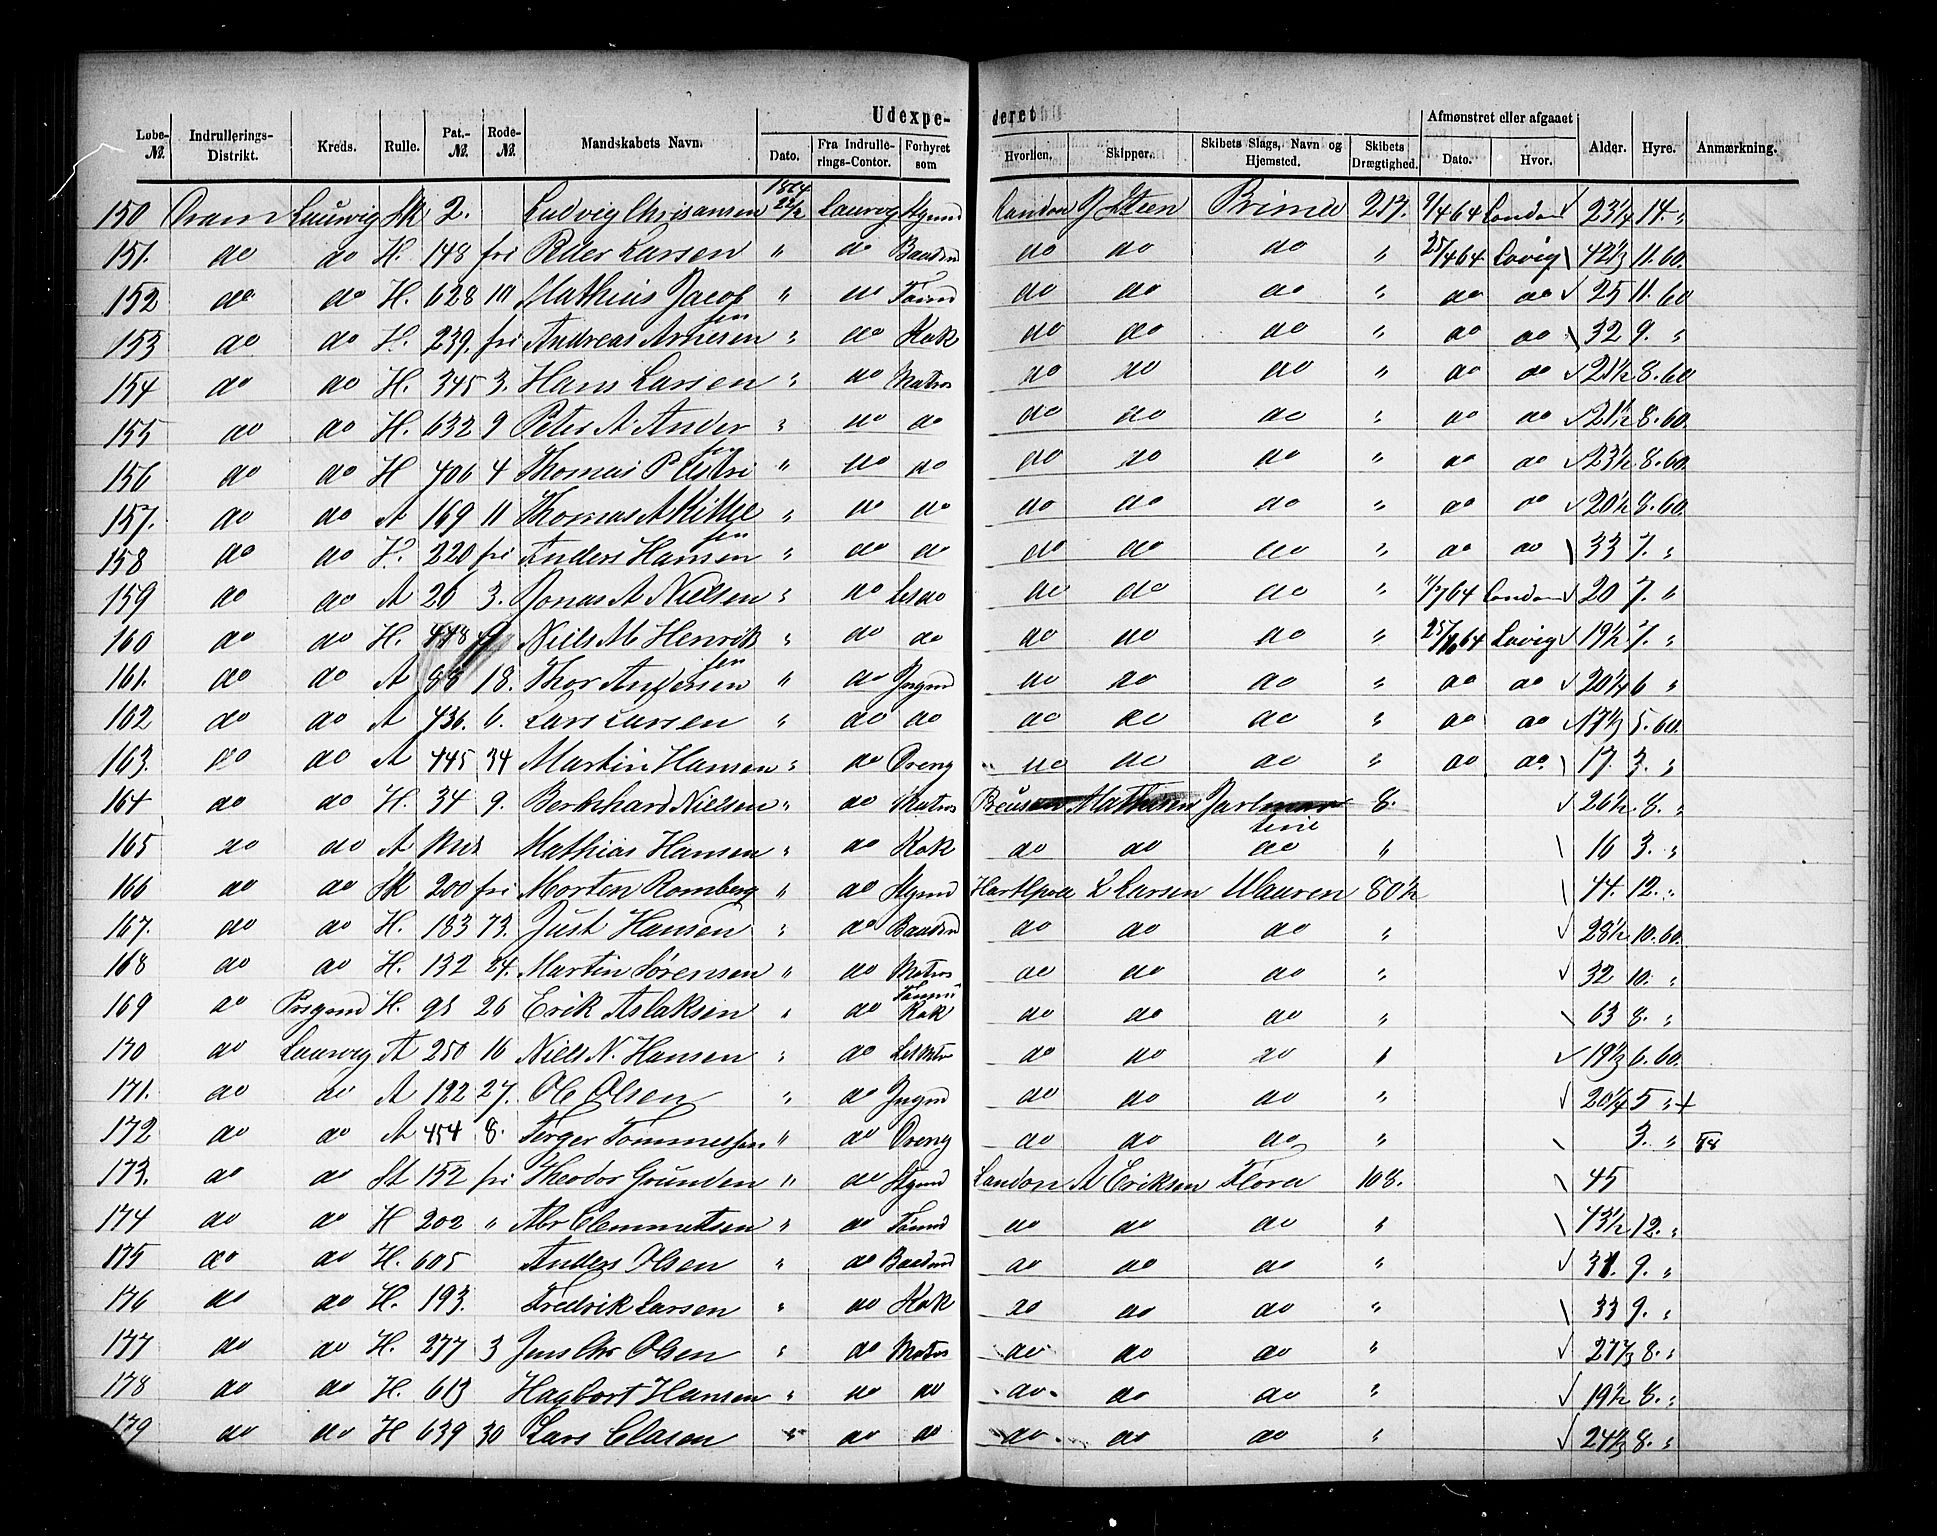 Udexpe- deret
Løbe-№. Indrullerings-Distrikt. Kreds. Rulle. Pat.-№. Rode-№. Mandskabets Navn. Dato. Fra Indrulle-rings-Contor. Forhyret som Hvorhen. Skipper. Skibets Slags, Navn og Hjemsted. Skibets Drægtighed. Afmønstret eller afgaaet Dato. Hvor. Alder. Hyre. Anmærkning.
1864
150 Dram Laurvig Sk 2. Ludvig Chrisansen 22/2 Laurvig Stymd London Steen Prima 213. 9/4 64 London √ 23 1/4 14. "
151. do do H. 148 fri Peder Larsen " do Baadsd do do do " 25/4 64 Lavig \ 42 1/3 11.60.
152 do do H. 628 10 Mathias Jacobsen " do Tømd do do do " do do √ 25 11.60
153 do do H. 239. fri Andreas Arnesen " do Kok do do do " do do \ 32 9. "
154 do do H. 345 3. Hans Larsen " do Matros do do do " do do √ 21 1/2 8.60
155 do do H. 632 9 Peter A. Andersen " do do do do do " do do √ 21 1/2 8.60.
156 do do H 706 4 Thomas P " do do do do do " do do √ 23 1/2 8.60.
157. do do A 169 11 Thomas A Kittelsen " do do do do do " do do √ 20 1/2 8.60.
158 do do H. 220 fri Anders Hansen " do do do do do " do do \ 33 7. "
159 do do A 26 3. Jonas A Nielsen " do do do do do " 64 London √ 20 7. "
160 do do H. 448 9 Niels M Henriksen " do do do do do " 64 Lavig √ 19 1/2 7. "
161. do do A 88 18. Thor Andersen " do Jngmd do do do " do do √ 20 1/4 6 "
162 do do A 436. 6. Lars Larsen " do do do do do " do do √ 17 1/2 5.60.
163. do do A 445 34 Martin Hansen " do Dreng do do do " do do \ 17. 3. "
164 do do H. 34 9. Berhard Nielsen " do Matros Mathisen 8. √ 26 1/2. 8. "
165 do do A Mathias Hansen " do Kok do do do " \ 16 3. "
166 do do Sk 200 fri Morten Romberg " do Stymd Hartlpool L Larsen Mauren 80 1/2 \ 44. 12. "
167. do do H. 183 73. Just Hansen " do Baadsd do do do " √ 28 1/2 10.60.
168 do do H. 132 24. Martin Sørensen " do Matros do do do " \ 32 10. "
169 do Prsgrnd H. 98 26 Erik Aslaksen " do Tømm Kok do do do " \ 63 8. "
170 do Laurvig A 250 16 Niels N. Hansen " do LetMtr do do do " √ 19 1/3 6.60.
171. do do A 122 27. Ole Olsen " do Jngmd do do do " √ 20 1/4 5 " +
172 do do A 454 8. Terger Tommessen " do Dreng do do do " \ 3. "
173. do do St 152 fri Theodor Grunden " do Stymd London A Eriksen Flora 108. \ 45
174 do do H 202 " Abr Clemmetsen " do Tømmd do do do " \ 43 1/2 12. "
175 do do H. 605 Anders Olsen " do Baadsmd do do do " √ 31. 9. "
176 do do H. 193. Fredrik Larsen " do Kok do do do " \ 33 9. "
177 do do H. 277 3 Jens Chr Olsen " do Matros do do do " √ 27 2/3 8. "
178 do do H. 613 Hagbart Hansen " do do do do do " √ 19 1/2 8. "
179 do do H 639 30 Lars Clasen " do do do do do " √ 24 1/3 8. "